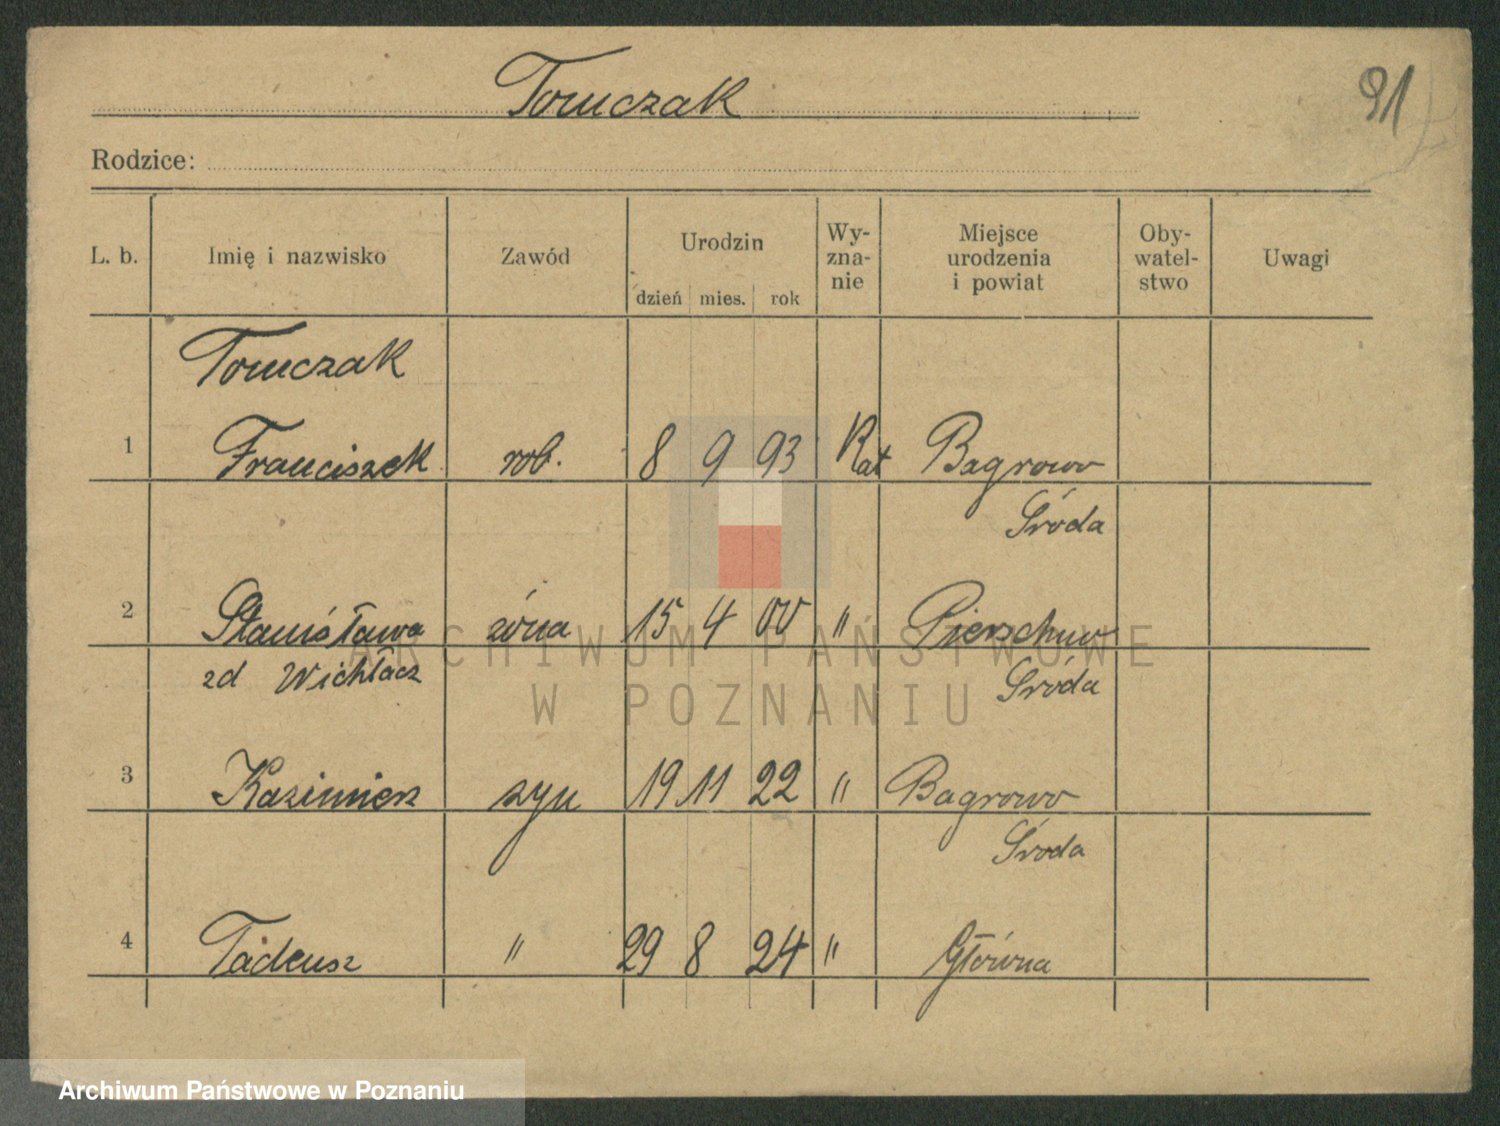 Tomczak
91
Rodzice:
L. b. Imię i nazwisko Zawód Urodzin dzień mies. rok Wy-zna-nie Miejsce urodzenia i powiat Oby-watel-stwo Uwagi
Tomczak
1 Franciszek rob. 8 9 93 Kat Bagrowo
Środa
2 Stanisława żóna 15 4 00 " Pierzchno
zd Wichłacz Środa
3 Kazimierz syn 19 11 22 " Bagrowo
Środa
4 Tadeusz " 29 8 24 " Główna
ARCHIWUM PAŃSTWOWE
W POZNANIU
Archiwum Państwowe w Poznaniu